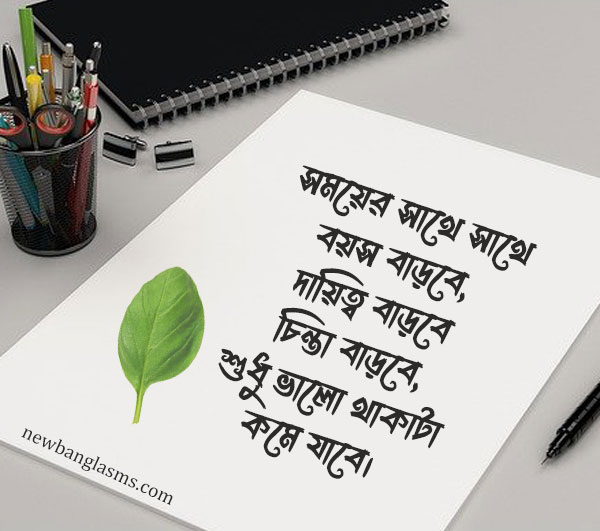 সময়ের সাথে সাথে
বয়স বাড়বে,
দায়িত্ব বাড়বে
চিন্তা বাড়বে,
শুধু ভালো থাকাটা
কমে যাবে।
newbanglasms.com